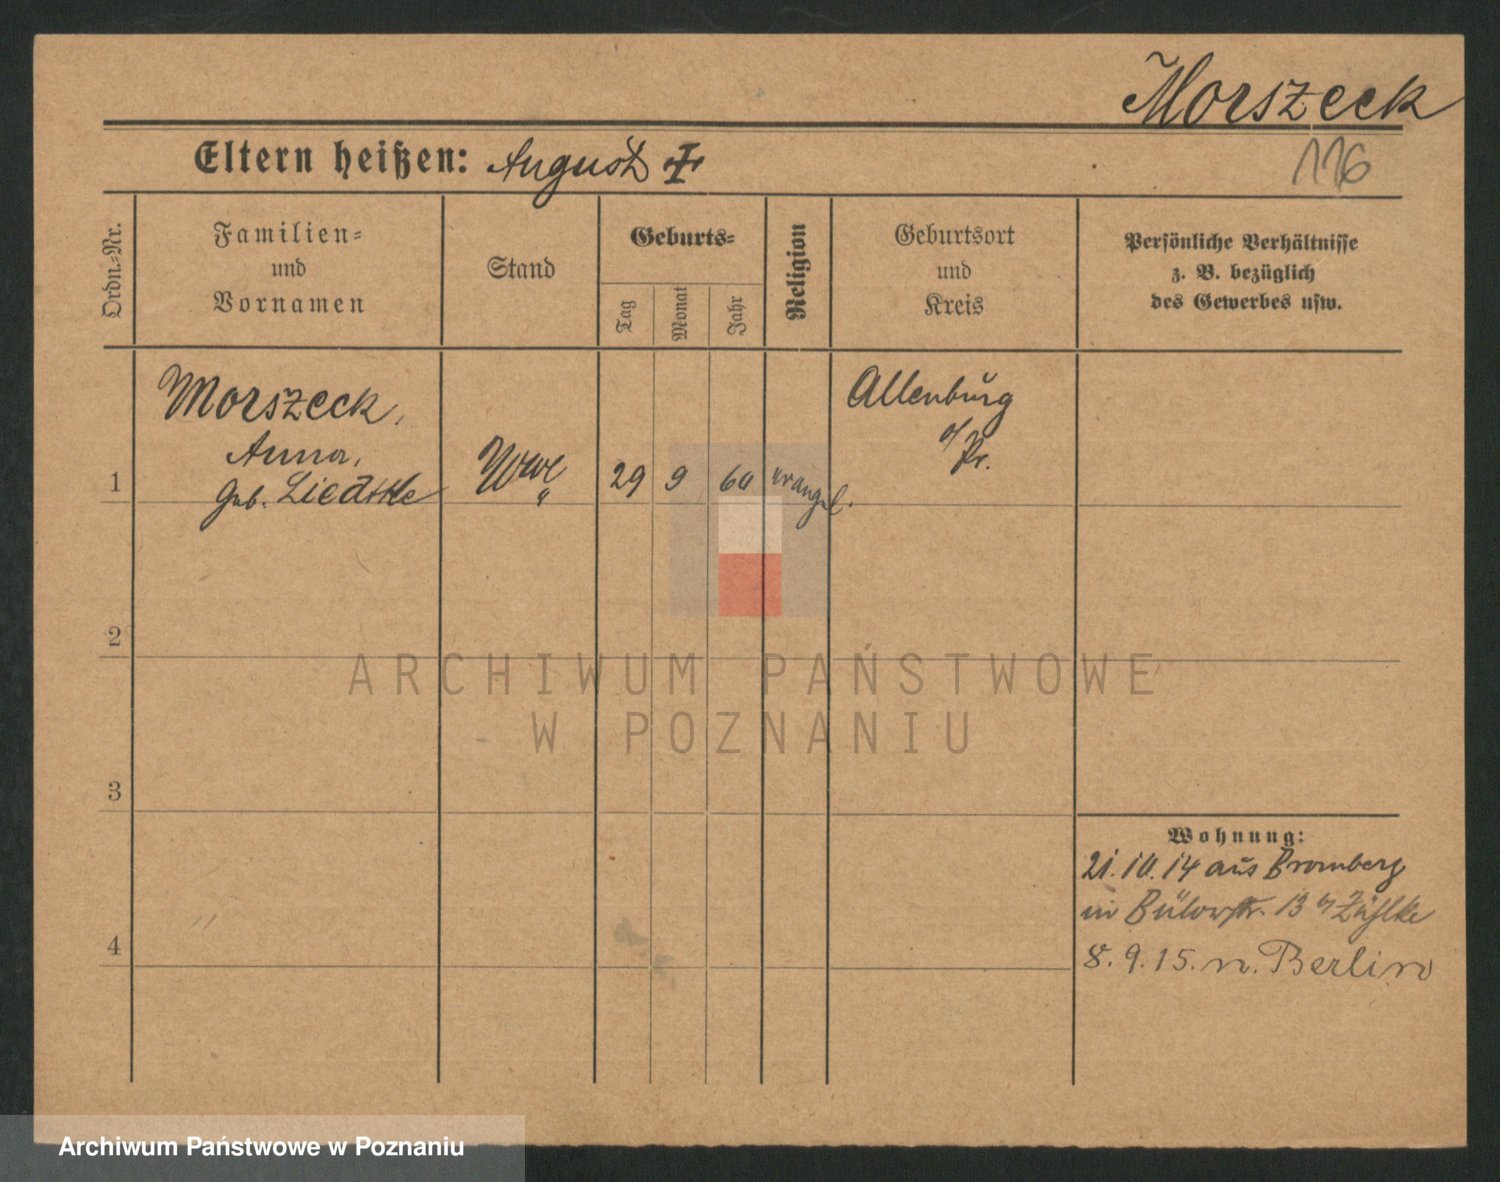 Morszeck
116
Eltern heißen: August
Ordn.-Nr.
Familien-
und
Vornamen
Stand
Geburts-
Tag
Monat
Jahr
Religion
Geburtsort
und
Kreis
Persönliche Verhältnisse
z. B. bezüglich
des Gewerbes usw.
1
Morszeck,
Anna,
geb. Liedtke
Wwe
29
9
60
evangel.
Allenburg
o/Pr.
2
3
4
Wohnung:
21.10.14 aus Bromberg
in Bülowstr. 13 b/ Zühlke
8.9.15. n. Berlin
ARCHIWUM PAŃSTWOWE
W POZNANIU
Archiwum Państwowe w Poznaniu